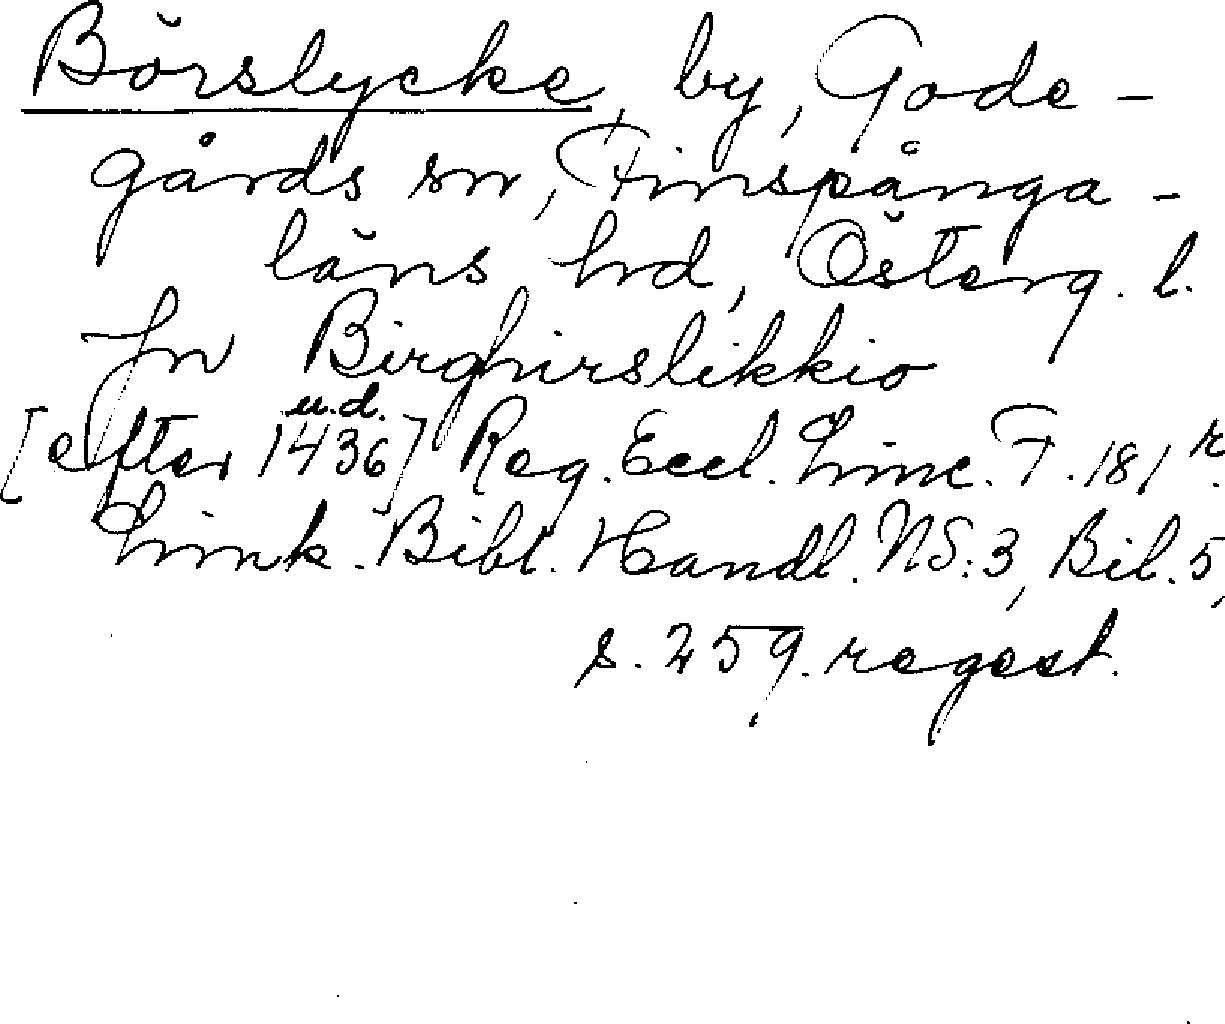 Börslycke, by, Gode-
gårds sn, Finspånga-
läns hd, Österg. l.
Jn Birghirslikkio
u.d.
[efter 1436] Reg. Eccl. Linc. F. 181 r.
Link. Bibl. Handl. NS: 3, Bil. 5,
s. 259. regest.